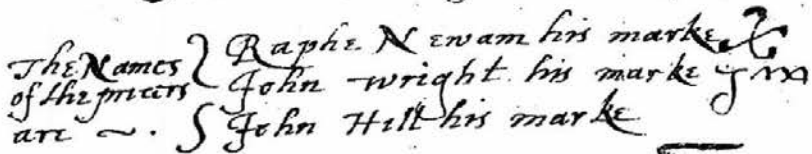 The Names of the prieers are ~.
Raphe Newam his marke
John wright his marke
John Hill his marke